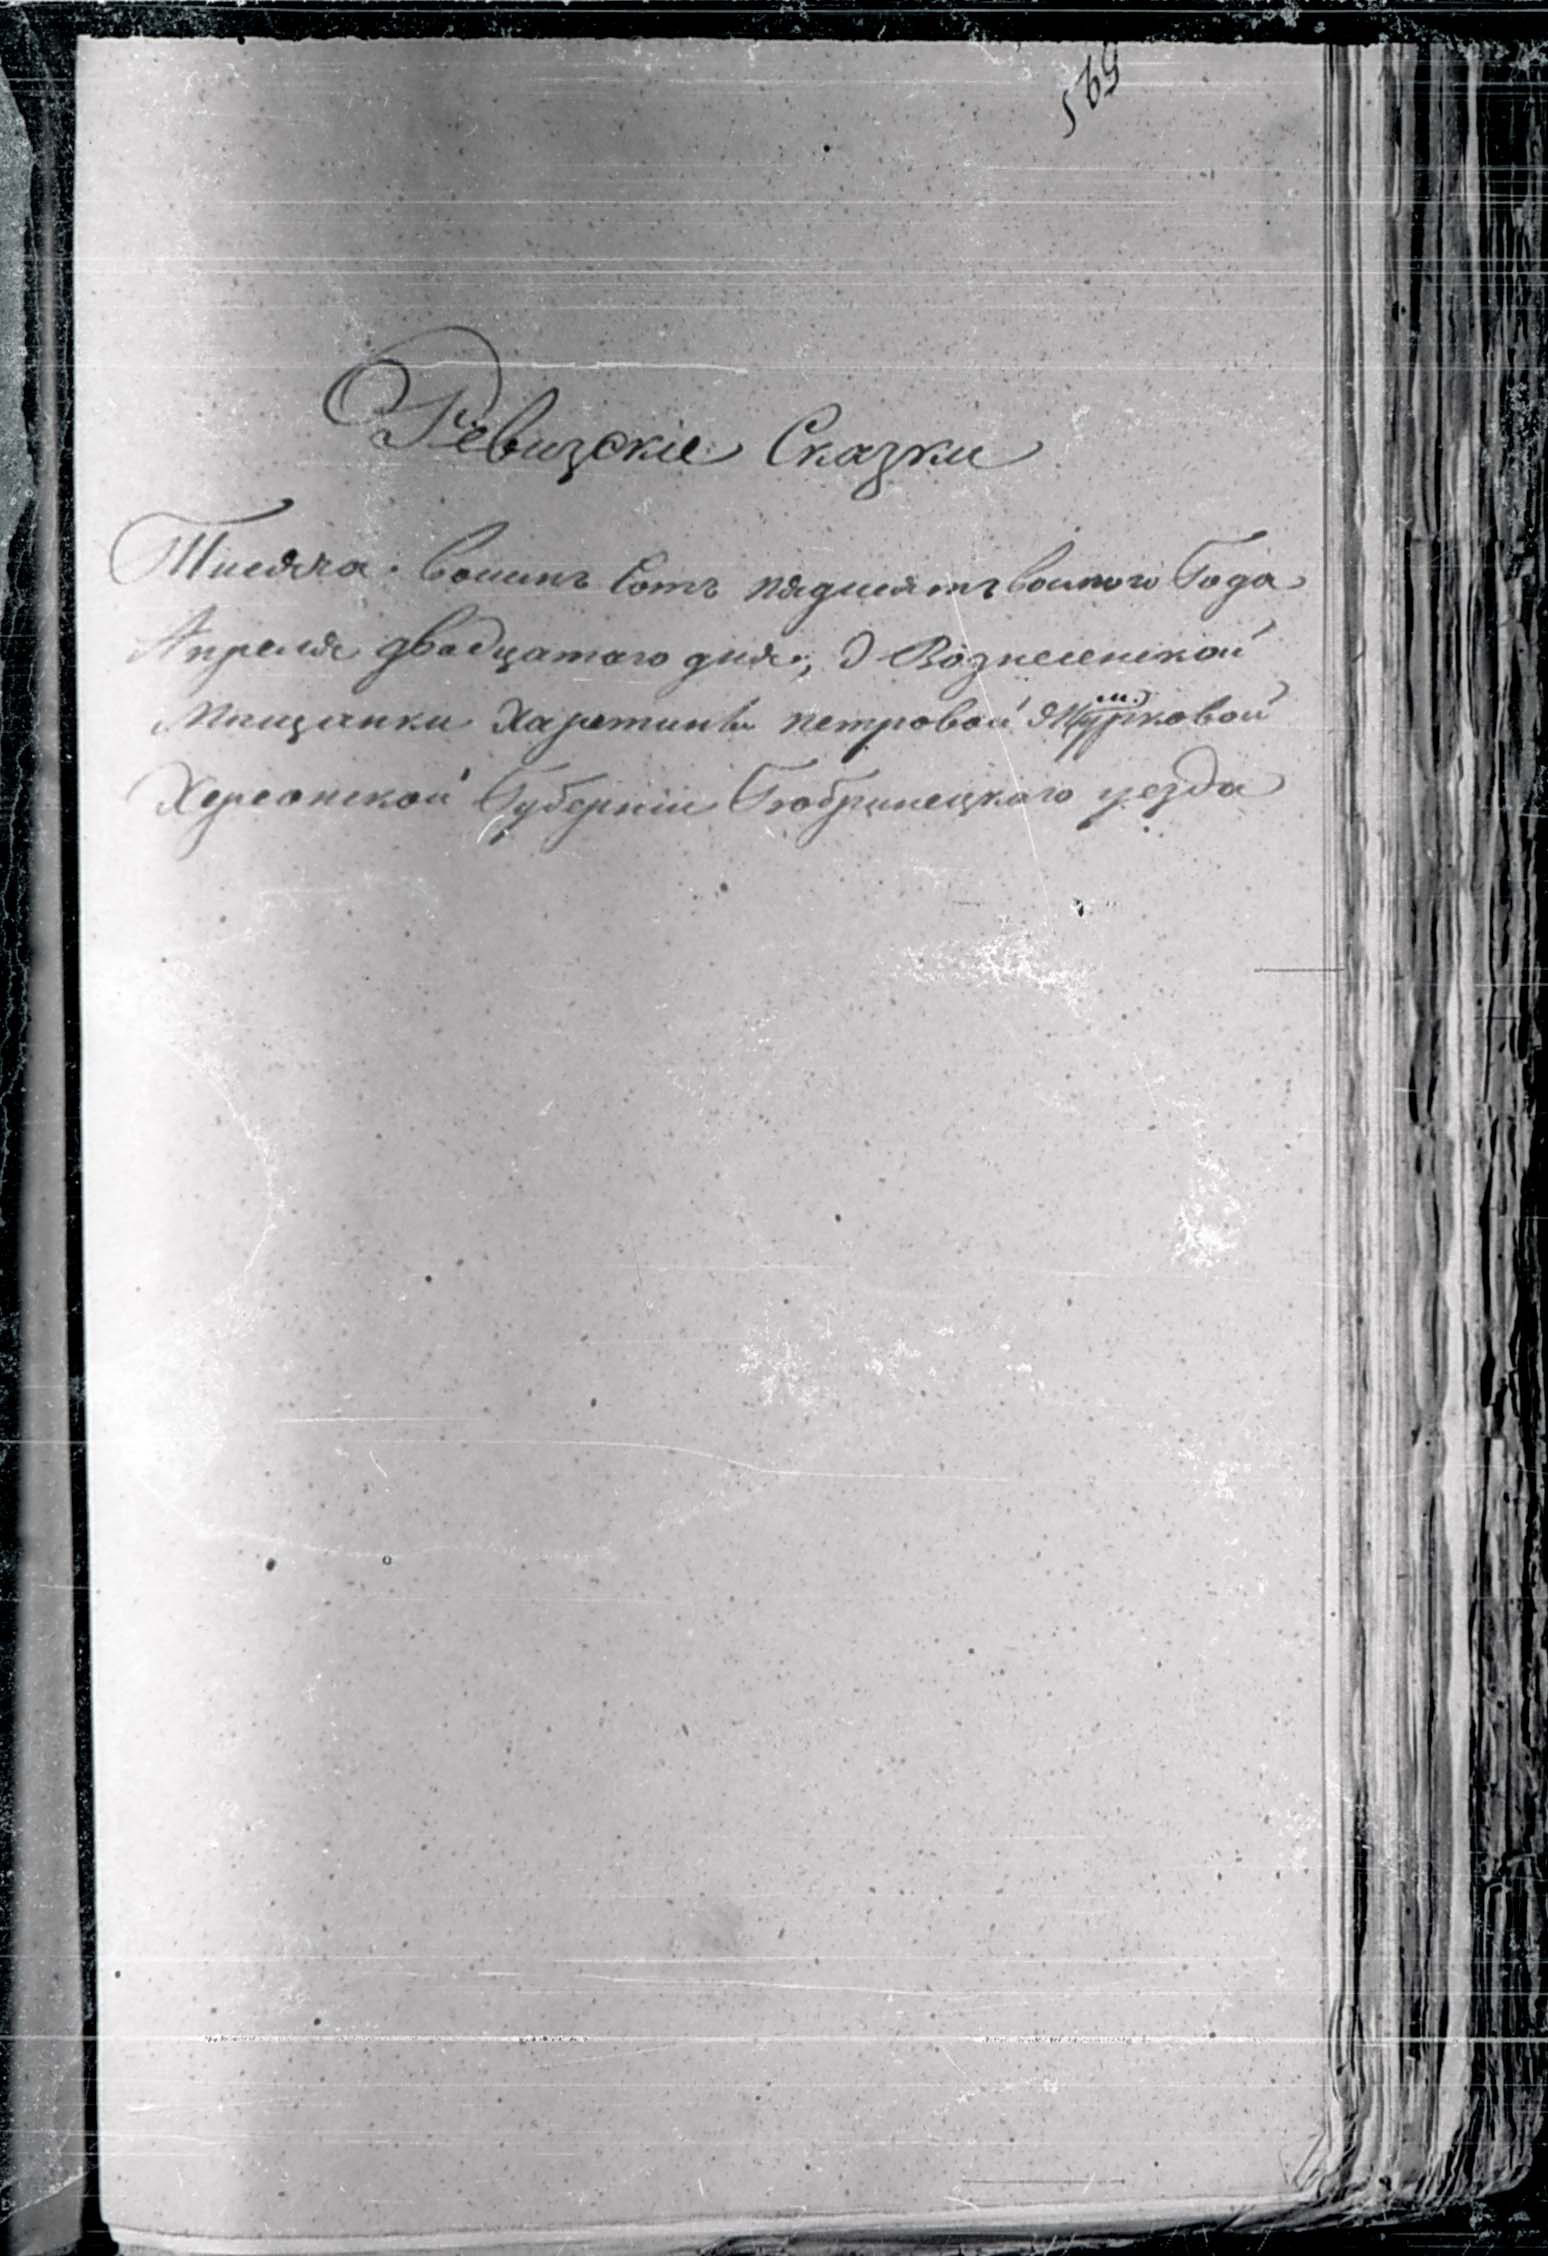 569
Ревизскіе Сказки
Тисяча восимъ Сотъ пядисятъ восмого Года
Апреля двадцатаго дня, О Вознесенской
Мищанки Харетинѣ петровой
Херсонской Губерніи Бобринецкаго уезда